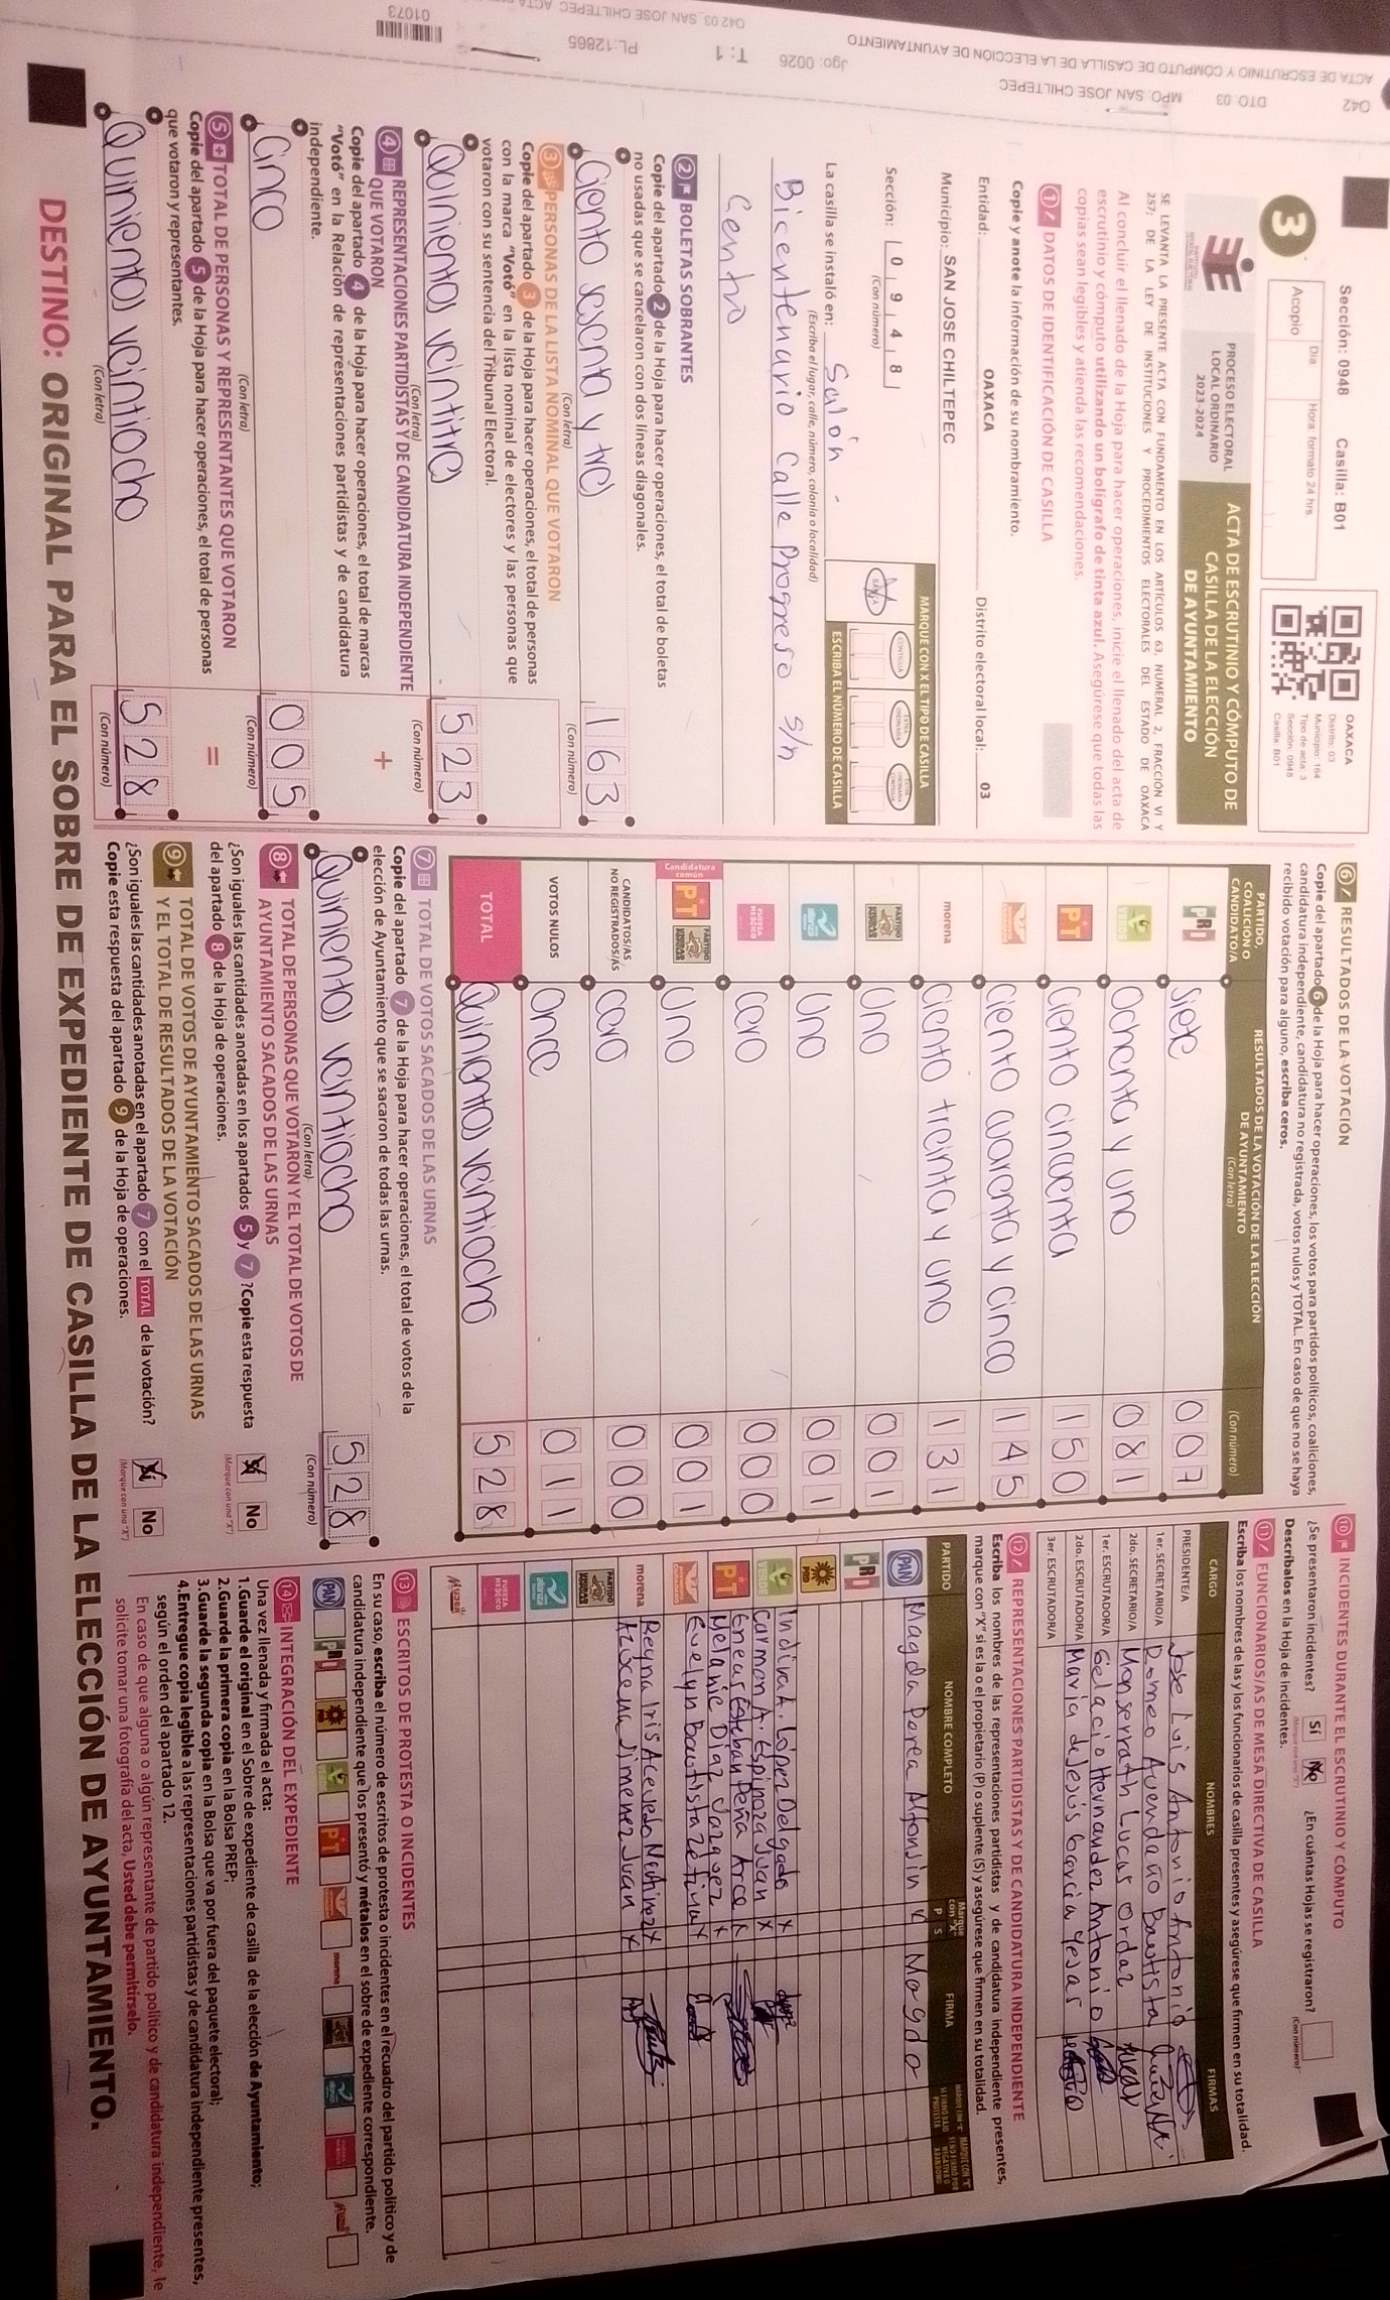 042 DTO: 03 MPO: SAN JOSE CHILTEPEC
ACTA DE ESCRUTINIO Y COMPUTO DE CASILLA DE LA ELECCION DE AYUNTAMIENTO
Jgo: 0026 T: 1 PL:12865
042 03 SAN JOSE CHILTEPEC
01073
Sección: 0948 Casilla: B01
3
Día Hora formato 24 hrs
Acopio
OAXACA
Distrito: 03
Municipio: 164
Tipo de acta: 3
Sección: 0948
Casilla: B01
PROCESO ELECTORAL
LOCAL ORDINARIO
2023-2024
ACTA DE ESCRUTINIO Y CÓMPUTO DE
CASILLA DE LA ELECCIÓN
DE AYUNTAMIENTO
SE LEVANTA LA PRESENTE ACTA CON FUNDAMENTO EN LOS ARTÍCULOS 63, NUMERAL 2, FRACCIÓN VI Y
257; DE LA LEY DE INSTITUCIONES Y PROCEDIMIENTOS ELECTORALES DEL ESTADO DE OAXACA
Al concluir el llenado de la Hoja para hacer operaciones, inicie el llenado del acta de
escrutinio y cómputo utilizando un bolígrafo de tinta azul. Asegúrese que todas las
copias sean legibles y atienda las recomendaciones.
1 DATOS DE IDENTIFICACIÓN DE CASILLA
Copie y anote la información de su nombramiento.
Entidad: OAXACA Distrito electoral local: 03
Municipio: SAN JOSE CHILTEPEC
Sección: 0 9 4 8
(Con número)
MARQUE CON X EL TIPO DE CASILLA
ESCRIBA EL NÚMERO DE CASILLA
La casilla se instaló en: Salón
(Escriba el lugar, calle, número, colonia o localidad)
Bicentenario Calle Progreso s/n
Centro
2 BOLETAS SOBRANTES
Copie del apartado 2 de la Hoja para hacer operaciones, el total de boletas
no usadas que se cancelaron con dos líneas diagonales.
Ciento sesenta y tres 163
(Con letra) (Con número)
3 PERSONAS DE LA LISTA NOMINAL QUE VOTARON
Copie del apartado 3 de la Hoja para hacer operaciones, el total de personas
con la marca "Votó" en la lista nominal de electores y las personas que
votaron con su sentencia del Tribunal Electoral.
Quinientos veintitres 523
(Con letra) (Con número)
4 REPRESENTACIONES PARTIDISTAS Y DE CANDIDATURA INDEPENDIENTE
QUE VOTARON
+
Copie del apartado 4 de la Hoja para hacer operaciones, el total de marcas
"Votó" en la Relación de representaciones partidistas y de candidatura
independiente.
Cinco 005
(Con letra) (Con número)
5 TOTAL DE PERSONAS Y REPRESENTANTES QUE VOTARON
=
Copie del apartado 5 de la Hoja para hacer operaciones, el total de personas
que votaron y representantes.
Quinientos veintiocho 528
(Con letra) (Con número)
6 RESULTADOS DE LA VOTACIÓN
Copie del apartado 6 de la Hoja para hacer operaciones, los votos para partidos políticos, coaliciones,
candidatura independiente, candidatura no registrada, votos nulos y TOTAL. En caso de que no se haya
recibido votación para alguno, escriba ceros.
PARTIDO, COALICIÓN O CANDIDATO/A
RESULTADOS DE LA VOTACIÓN DE LA ELECCIÓN DE AYUNTAMIENTO
(Con letra) (Con número)
PRD Siete 007
VERDE Ochenta y uno 081
PT Ciento cincuenta 150
Ciento cuarenta y cinco 145
morena Ciento treinta y uno 131
Uno 001
Uno 001
FUERZA MÉXICO Cero 000
Candidatura común PT Uno 001
CANDIDATOS/AS NO REGISTRADOS/AS Cero 000
VOTOS NULOS Once 011
TOTAL Quinientos veintiocho 528
7 TOTAL DE VOTOS SACADOS DE LAS URNAS
Copie del apartado 7 de la Hoja para hacer operaciones, el total de votos de la
elección de Ayuntamiento que se sacaron de todas las urnas.
Quinientos veintiocho 528
(Con letra) (Con número)
8 TOTAL DE PERSONAS QUE VOTARON Y EL TOTAL DE VOTOS DE
AYUNTAMIENTO SACADOS DE LAS URNAS
¿Son iguales las cantidades anotadas en los apartados 5 y 7? Copie esta respuesta
del apartado 8 de la Hoja de operaciones.
Sí No
(Marque con una "X")
9 TOTAL DE VOTOS DE AYUNTAMIENTO SACADOS DE LAS URNAS
Y EL TOTAL DE RESULTADOS DE LA VOTACIÓN
¿Son iguales las cantidades anotadas en el apartado 7 con el TOTAL de la votación?
Copie esta respuesta del apartado 9 de la Hoja de operaciones.
Sí No
(Marque con una "X")
10 INCIDENTES DURANTE EL ESCRUTINIO Y CÓMPUTO
¿Se presentaron incidentes? Sí No ¿En cuántas Hojas se registraron?
(Con número)
Descríbalos en la Hoja de incidentes.
11 FUNCIONARIOS/AS DE MESA DIRECTIVA DE CASILLA
Escriba los nombres de las y los funcionarios de casilla presentes y asegúrese que firmen en su totalidad.
CARGO NOMBRES FIRMAS
PRESIDENTE/A Jose Luis Antonio Antonio
1er. SECRETARIO/A Romeo Avendaño Bautista
2do. SECRETARIO/A Monserrath Lucas Ordaz
1er. ESCRUTADOR/A Gelacio Hernandez Antonio
2do. ESCRUTADOR/A Maria de Jesus Garcia Yesas
3er. ESCRUTADOR/A
12 REPRESENTACIONES PARTIDISTAS Y DE CANDIDATURA INDEPENDIENTE
Escriba los nombres de las representaciones partidistas y de candidatura independiente presentes,
marque con "X" si es la o el propietario (P) o suplente (S) y asegúrese que firmen en su totalidad.
PARTIDO NOMBRE COMPLETO Marque con "X" P S FIRMA
PAN Magda Perea Alfonsin X Magda
PRI
PRD Indira A. López Delgado X
VERDE Carmen A. Espinoza Juan X
PT Eneas Esteban Peña Arce X
Melanie Diaz Vazquez X
Evelyn Bautista Zeferino X
morena Reyna Iris Acevedo Martinez X
Azucena Jimenez Juan X
13 ESCRITOS DE PROTESTA O INCIDENTES
En su caso, escriba el número de escritos de protesta o incidentes en el recuadro del partido político y de
candidatura independiente que los presentó y métalos en el sobre de expediente correspondiente.
PAN PRI VERDE PT morena
14 INTEGRACIÓN DEL EXPEDIENTE
Una vez llenada y firmada el acta:
1.Guarde el original en el Sobre de expediente de casilla de la elección de Ayuntamiento;
2.Guarde la primera copia en la Bolsa PREP;
3.Guarde la segunda copia en la Bolsa que va por fuera del paquete electoral;
4.Entregue copia legible a las representaciones partidistas y de candidatura independiente presentes,
según el orden del apartado 12.
En caso de que alguna o algún representante de partido político y de candidatura independiente, le
solicite tomar una fotografía del acta, Usted debe permitírselo.
DESTINO: ORIGINAL PARA EL SOBRE DE EXPEDIENTE DE CASILLA DE LA ELECCIÓN DE AYUNTAMIENTO.